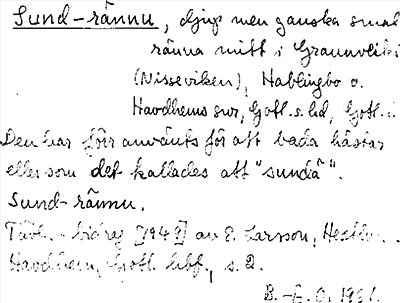 Sund-rännu, djup men ganska smal
ränna mitt i
(Nisseviken), Hablingbo o.
Havdhems snr, Gotl. s. hd, Gotl.
Den har förr använts för att bada hästar
eller som det kallades att "sundä".
Sund-rännu.
Tävl.-bidrag [1949] av E. Larsson,
Havdhem, Gotl. s. 2.
B.-E. O. 1961.